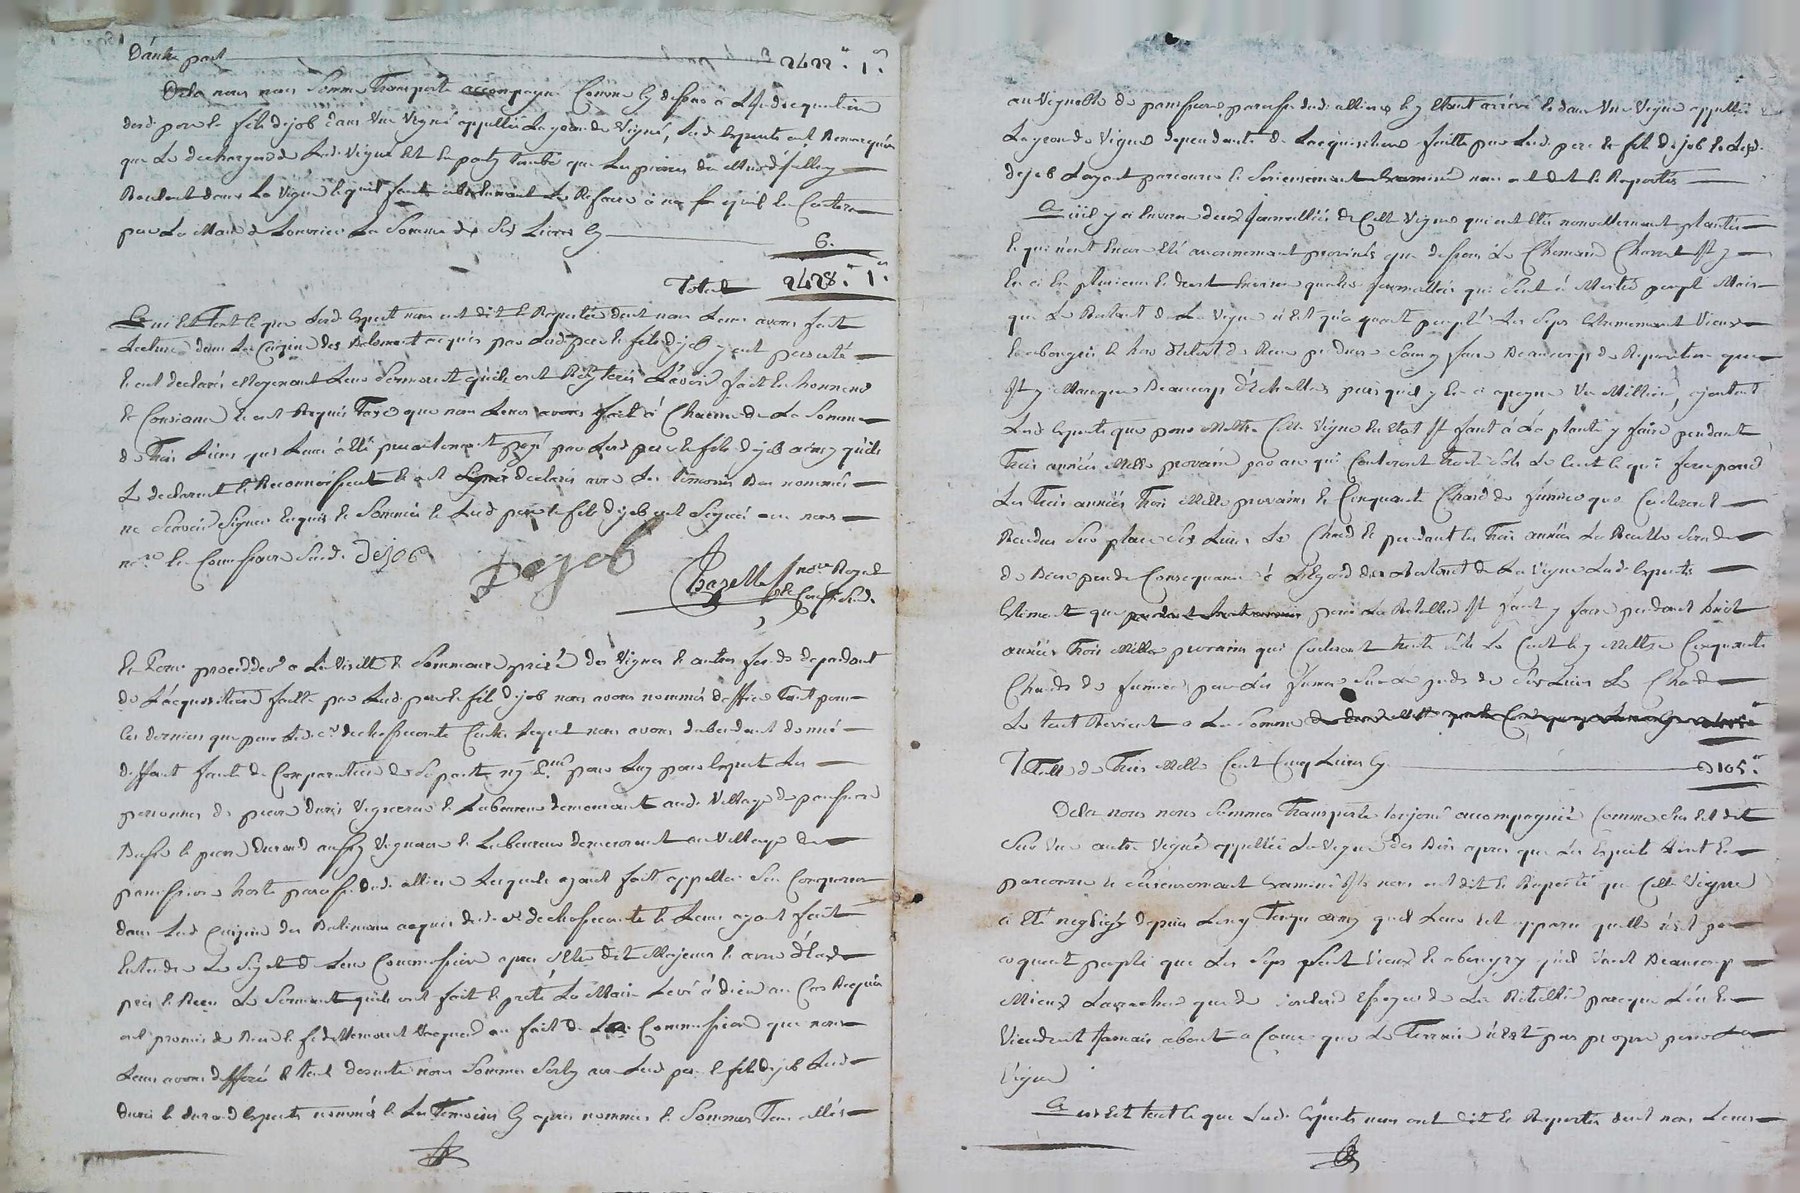 D'autre part 2422" 1"
Dela nous nous somme Transporté accompagné Comme Cy dessus a
desd. pere et fils dejob dans une vigne appellée La grande vigne, Lesd. experts ont Remarqué
que La decharge de Lad. vigne est en partie tombé que Les pierres
Roulent dans La vigne et qu'il faut absolument La Refaire a ne fin qu'il en Coutera
pour La Main de Louvrier La Somme de Six Livres Cy
6.
Total 2428" 1"
Qui est tout ce que Lesd. experts nous ont dit et Rapporté dont nous Leurs avons fait
Lecture dans La Cuizine des Batiment acquis par Lesd. pere et fils dejob y ont persisté
et ont declaré Moyenant Leur serment qu'ils ont Reyteré L'avoir fait en honneur
et Consiance et ont Requis Taxe que nous Leurs avons fait a Chacun de La Somme
de Trois Livres qui Leurs a été payé par Lesd. pere et fils dejob ainsy qu'ils
Le declarent et Reconnoissent et ont declaré avec Les temoins Bas nommés
ne scavoir Signer Enquis et Sommés et Lesd. pere et fils dejob ont Signé avec nous
no.re et Commissaire Susd. Dejob
Dejob
Chazelle no.re Royal
et Com.re Susd.
Et Pour proceder a La visitte et Sommaire prisé des vignes et autres fonds dependant
de L'acquisition faitte par Lesd. pere et fils dejob nous avons nommés d'office tant pour
ces derniers que pour Led. s.r dechossecourte Contre Lequel nous avons dabondant donné
diffaut faute de Comparution pour Luy pour Expert Les
personnes de pierre duris vigneron et Laboureur demeurant aud. village de panissiere
Basse et pierre durand aussy vigneron et Laboureur demeurant au village de
panissiere haute paroisse dud. allieu Lesquels ayant fait appeller Sont Comparus
dans Lad. Cuizine des Batiments acquis dud. s.r dechossecourte et Leurs ayant fait
Entendre Le Sujet de Leur Commission apres S'etre dit Majeurs et avoir d'eux
pris et Recu Le Serment qu'ils ont fait et preté La Main Levé a dieu au Cas Requis
ont promis de Bien et fidellement vacquer au fait de Leur Commission que nous
Leurs avons differé et tout desuite nous Sommes Sortis avec Lesd. pere et fils dejob Lesd.
duris et durand Experts nommés et Les Temoins Cy apres nommés et Sommes Tous allés
au vignoble de panissiere paroisse dud. allieu et y Etant arrivé et dans une vigne appellée
La grande vigne dependante de Lacquisition faitte par Lesd. pere et fils dejob et Lesd.
dejob Layant parcouru et serieusement Examiné nous ont dit et Raporté
Quil y a Environ deux Journallées de Cette vigne qui ont étés nouvellement plantés
et qui n'ont encore été aucunement provinés que dessous Le Chemin
en a en plusieurs endroit Environ quatre Journallées qui sont a Moitié peuplé Mais
que Le Restant de La vigne n'est qu'a peuplé Les Seps Extremement vieux
et hors d'etat de Rien produire sans y faire Beaucoup de Reparation que
Il y Manque Beaucoup d'Echallas puis quil y en a apeyne Un Millier, ajoutent
Lesd. experts que pour Mettre Cette vigne en Etat Il faut a La plante y faire pendant
Trois années Mille provins par an qui Couteront trente sols Le Cent Ce qui fera pour
Les Trois années Trois Mille provins et Cinquante Chard de fumier que Couteront
Rendus Sur place Six Livres Le Chard et pendant Ces Trois années La Recolte sera de
de Bien peu de Consequence a L'Egard du Restant de La vigne Lesd. Experts
Estiment que pour La Retablir Il faut y faire pendant huit
années Trois Mille provains qui Couteront trente sols Le Cent et y Mettre Cinquante
Chards de fumier pour Les fumer Sur Le pieds de Six Livres Le Chard
Le tout Revient a La Somme
Totalle de Trois Mille Cent Cinq Livres Cy 3105"
Dela nous nous Sommes Transporté toujours accompagnée Comme dessus est dit
Sur Une autre vigne appellée La vigne des Bois apres que Les Experts L'ont
parcouru et serieusement Examiné Ils nous ont dit et Raporté que Cette vigne
a été negligé depuis Long Temps ainsy quil Leur est apparu quelle n'est pas
peuplé que Les Seps sont vieux et quil vaut Beaucoup
Mieux Larracher que de vouloir Essayer de La Retablir parceque L'on En
viendroit Jamais about a Cause que Le Terrein n'est pas propre pour La
vigne
Qui est tout ce que Lesd. Experts nous ont dit et Raporté dont nous Leurs